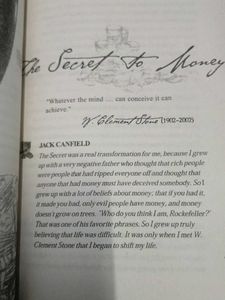 The Secret to Money
"Whatever the mind ... can conceive it can
achieve."
W. Clement Stone (1902-2002)
JACK CANFIELD
The Secret was a real transformation for me, because I grew
up with a very negative father who thought that rich people
were people that had ripped everyone off and thought that
anyone that had money must have deceived somebody. So I
grew up with a lot of beliefs about money; that if you had it,
it made you bad, only evil people have money, and money
doesn't grow on trees. "Who do you think I am, Rockefeller?"
That was one of his favorite phrases. So I grew up truly
believing that life was difficult. It was only when I met W.
Clement Stone that I began to shift my life.